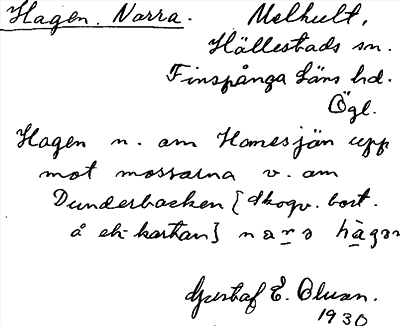 Hagen, Norra. Melhult,
Hällestads sn.
Finspånga läns hd.
Ögl.
Hagen n. om Hornesjön upp
mot mossarna v. om
Dunderbacken [skogv. bort.
å ek. kartan] nara hagan
Gustaf E. Olsson.
1930